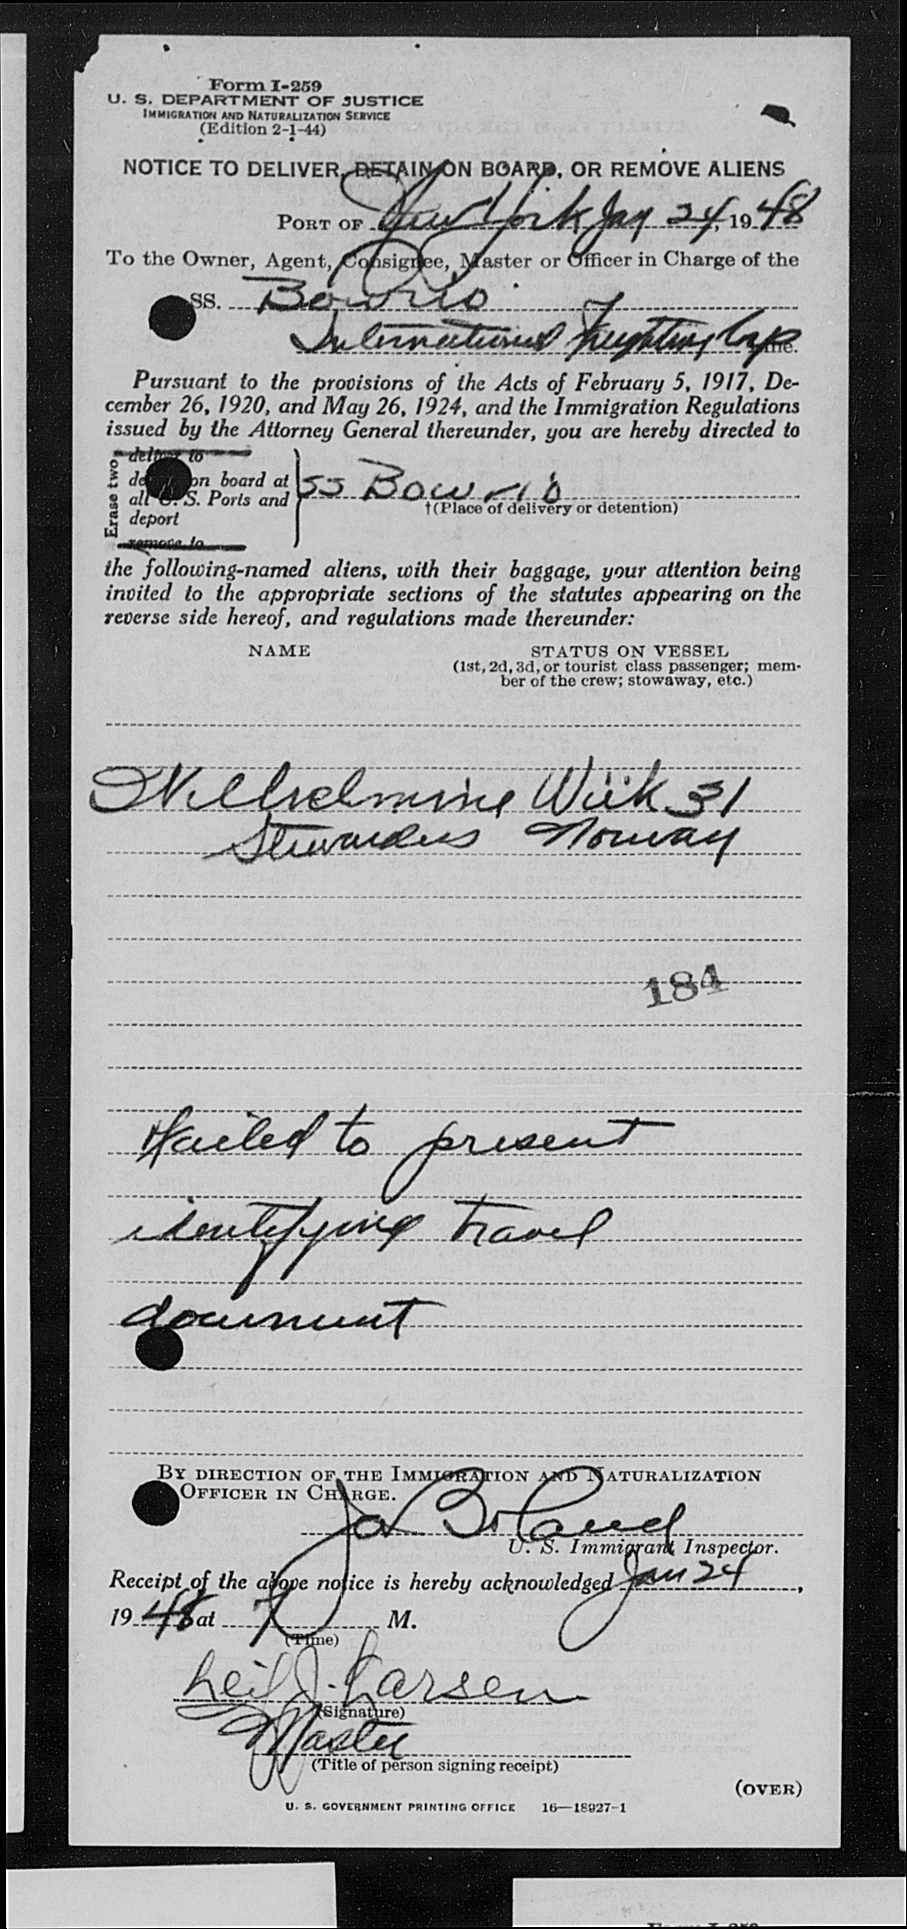 Form I-259
U. S. DEPARTMENT OF JUSTICE
IMMIGRATION AND NATURALIZATION SERVICE
(Edition 2-1-44)
NOTICE TO DELIVER, DETAIN ON BOARD, OR REMOVE ALIENS
PORT OF New York Jan 24, 1948
To the Owner, Agent, Consignee, Master or Officer in Charge of the
SS. Bowrio
International Freighting Corp
Pursuant to the provisions of the Acts of February 5, 1917, De-
cember 26, 1920, and May 26, 1924, and the Immigration Regulations
issued by the Attorney General thereunder, you are hereby directed to
Erase two
deliver to
on board at
all U. S. Ports and
deport
remove to
SS Bowrio
†(Place of delivery or detention)
the following-named aliens, with their baggage, your attention being
invited to the appropriate sections of the statutes appearing on the
reverse side hereof, and regulations made thereunder:
NAME STATUS ON VESSEL
(1st, 2d, 3d, or tourist class passenger; mem-
ber of the crew; stowaway, etc.)
Wilhelmine Wiik 31
Stewardess Norway
184
Failed to present
identifying travel
document
BY DIRECTION OF THE IMMIGRATION AND NATURALIZATION
OFFICER IN CHARGE.
Boland
U. S. Immigrant Inspector.
Receipt of the above notice is hereby acknowledged Jan 24,
1948 at 7 M.
(Time)
Leif J. Larsen
(Signature)
Master
(Title of person signing receipt)
(OVER)
U. S. GOVERNMENT PRINTING OFFICE 16—18927-1